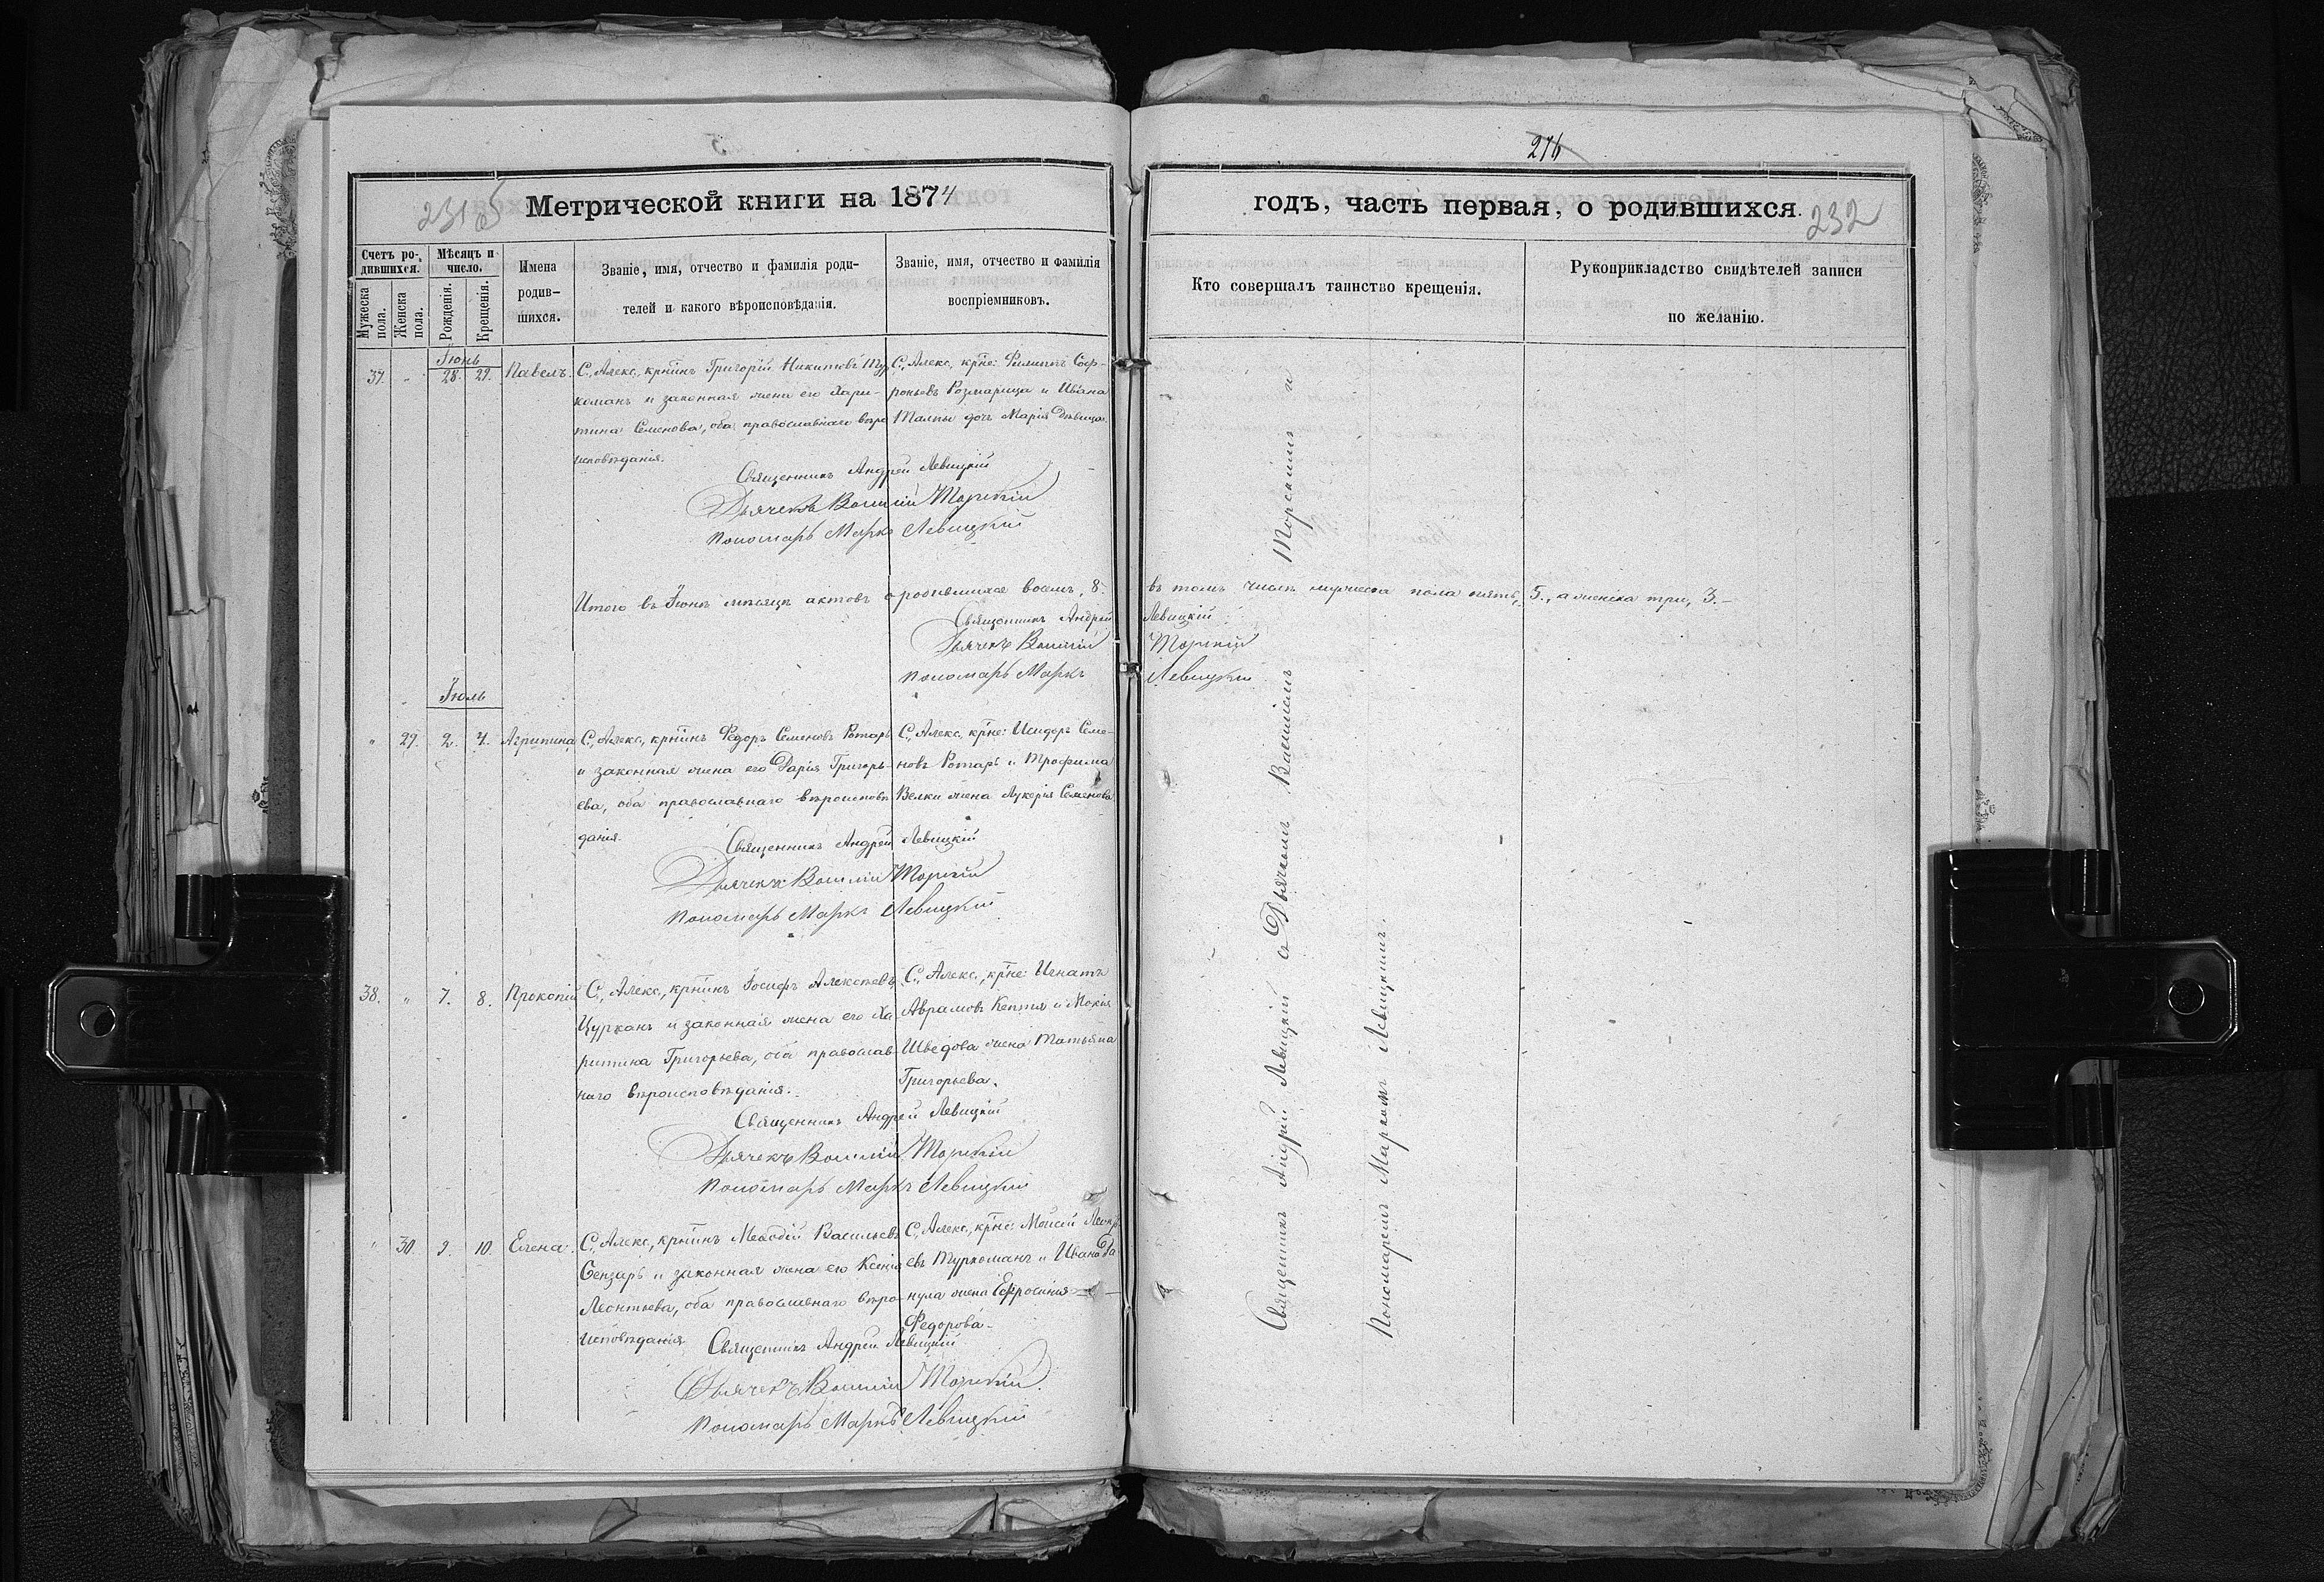 276
231 об
Метрической книги на 1874
годъ, часть первая, о родившихся.
232
Счетъ родившихся.
Мужеска пола.
Женска пола.
Мѣсяцъ и число.
Рожденія.
Крещенія.
Имена родившихся.
Званіе, имя, отчество и фамилія родителей и какого вѣроисповѣданія.
Званіе, имя, отчество и фамилія воспріемниковъ.
Кто совершалъ таинство крещенія.
Рукоприкладство свидѣтелей записи по желанію.
Іюнь
37. „ 28. 29. Павелъ.
С. Алекс. крнинъ Григорій Никитовъ Тур
команъ и законная жена его Хари-
тина Семенова, оба православнаго вѣро
исповѣданія.
С. Алекс. крне: Филиппъ Соф-
роньевъ Розмарица и Ивана
Талпы дочь Марія Дѣвица
Священникъ Андрей Левицкій
Дьячекъ Василій Торскій
Пономарь Маркъ Левицкій
Итого въ Іюнѣ мѣсяцѣ актовъ о родившихся восемь, 8. въ томъ числѣ мужеска пола пять, 5., а женска три, 3.—
Священникъ Андрей Левицкій
Дьячекъ Василій Торскій
Пономарь Маркъ Левицкій
Іюль
„ 29. 2. 7. Агрипина
С. Алекс. крнинъ Федоръ Семеновъ Ротарь
и законная жена его Дарія Григорь-
ева, оба православнаго вѣроисповѣ
данія.
С. Алекс. крне: Исидоръ Семе-
новъ Ротарь и Трофима
Велки жена Лукерія Семенова
Священникъ Андрей Левицкій
Дьячекъ Василій Торскій
Пономарь Маркъ Левицкій
38. „ 7. 8. Прокопій
С. Алекс. крнинъ Іосифъ Алексѣевъ
Цурканъ и законная жена его Ха
ритина Григорьева, оба православ-
наго вѣроисповѣданія.
С. Алекс. крне: Игнатъ
Аврамовъ Кептя и Мокія
Шведова жена Татьяна
Григорьева.
Священникъ Андрей Левицкій
Дьячекъ Василій Торскій
Пономарь Маркъ Левицкій
„ 30. 9. 10. Елена.
С. Алекс. крнинъ Меѳодій Васильевъ
Сензарь и законная жена его Ксенія
Леонтьева, оба православнаго вѣро-
исповѣданія
С. Алекс. крне: Моисей
евъ Туркоманъ и Ивана Га
нула жена Ефросинія
Федорова.
Священникъ Андрей Левицкій
Дьячекъ Василій Торскій
Пономарь Маркъ Левицкій
Священникъ Андрей Левицкій съ Дьячкомъ Василіемъ Торскимъ и
Пономаремъ Маркомъ Левицкимъ.